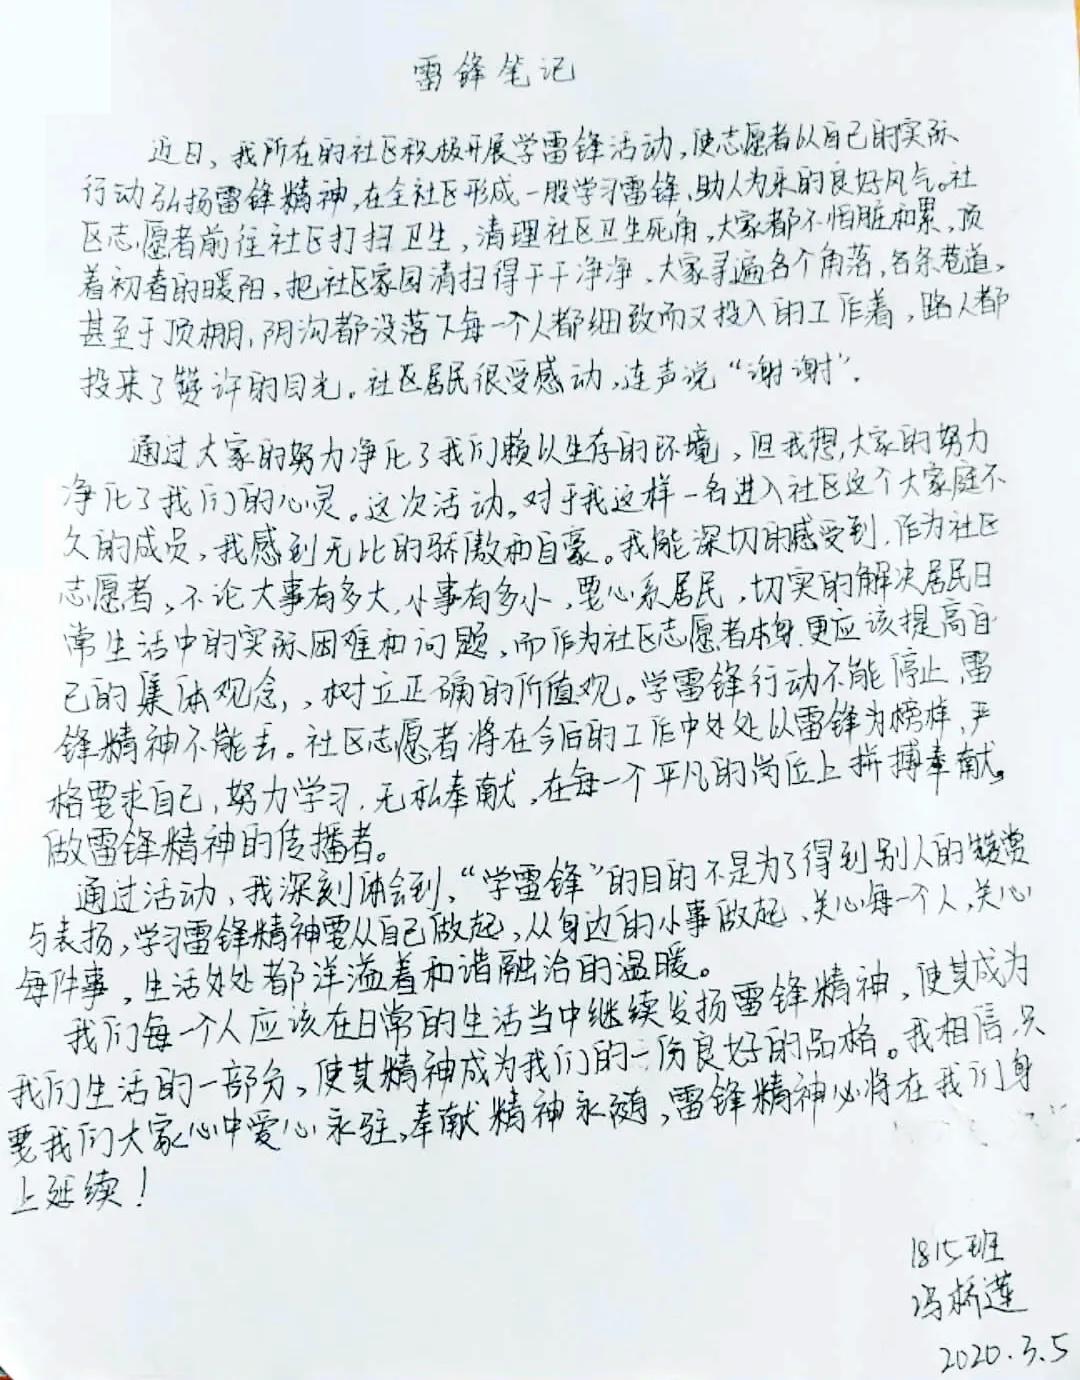 雷锋笔记
近日，我所在的社区积极开展学雷锋活动，使志愿者以自己的实际
行动弘扬雷锋精神，在全社区形成一股学习雷锋、助人为乐的良好风气。社
区志愿者前往社区打扫卫生，清理社区卫生死角，大家都不怕脏和累，顶
着初春的暖阳，把社区家园清扫得干干净净，大家寻遍各个角落，各条巷道，
甚至于顶棚，阴沟都没落下每一个人都细致而又投入的工作着，路人都
投来了赞许的目光。社区居民很受感动，连声说“谢谢”。
通过大家的努力净化了我们赖以生存的环境，但我想，大家的努力
净化了我们的心灵。这次活动。对于我这样一名进入社区这个大家庭不
久的成员，我感到无比的骄傲和自豪。我能深切的感受到，作为社区
志愿者，不论大事有多大，小事有多小，要心系居民，切实的解决居民日
常生活中的实际困难和问题，而作为社区志愿者本身，更应该提高自
己的集体观念，，树立正确的价值观。学雷锋行动不能停止，雷
锋精神不能丢。社区志愿者将在今后的工作中处处以雷锋为榜样，严
格要求自己，努力学习，无私奉献，在每一个平凡的岗位上拼搏奉献。
做雷锋精神的传播者。
通过活动，我深刻体会到，“学雷锋”的目的不是为了得到别人的赞赏
与表扬，学习雷锋精神要从自己做起，从身边的小事做起，关心每一个人，关心
每件事，生活处处都洋溢着和谐融洽的温暖。
我们每一个人应该在日常的生活当中继续发扬雷锋精神，使其成为
我们生活的一部分，使其精神成为我们的一份良好的品格。我相信，只
要我们大家心中爱心永驻，奉献精神永随，雷锋精神必将在我们身
上延续！
1815班
冯桥莲
2020.3.5